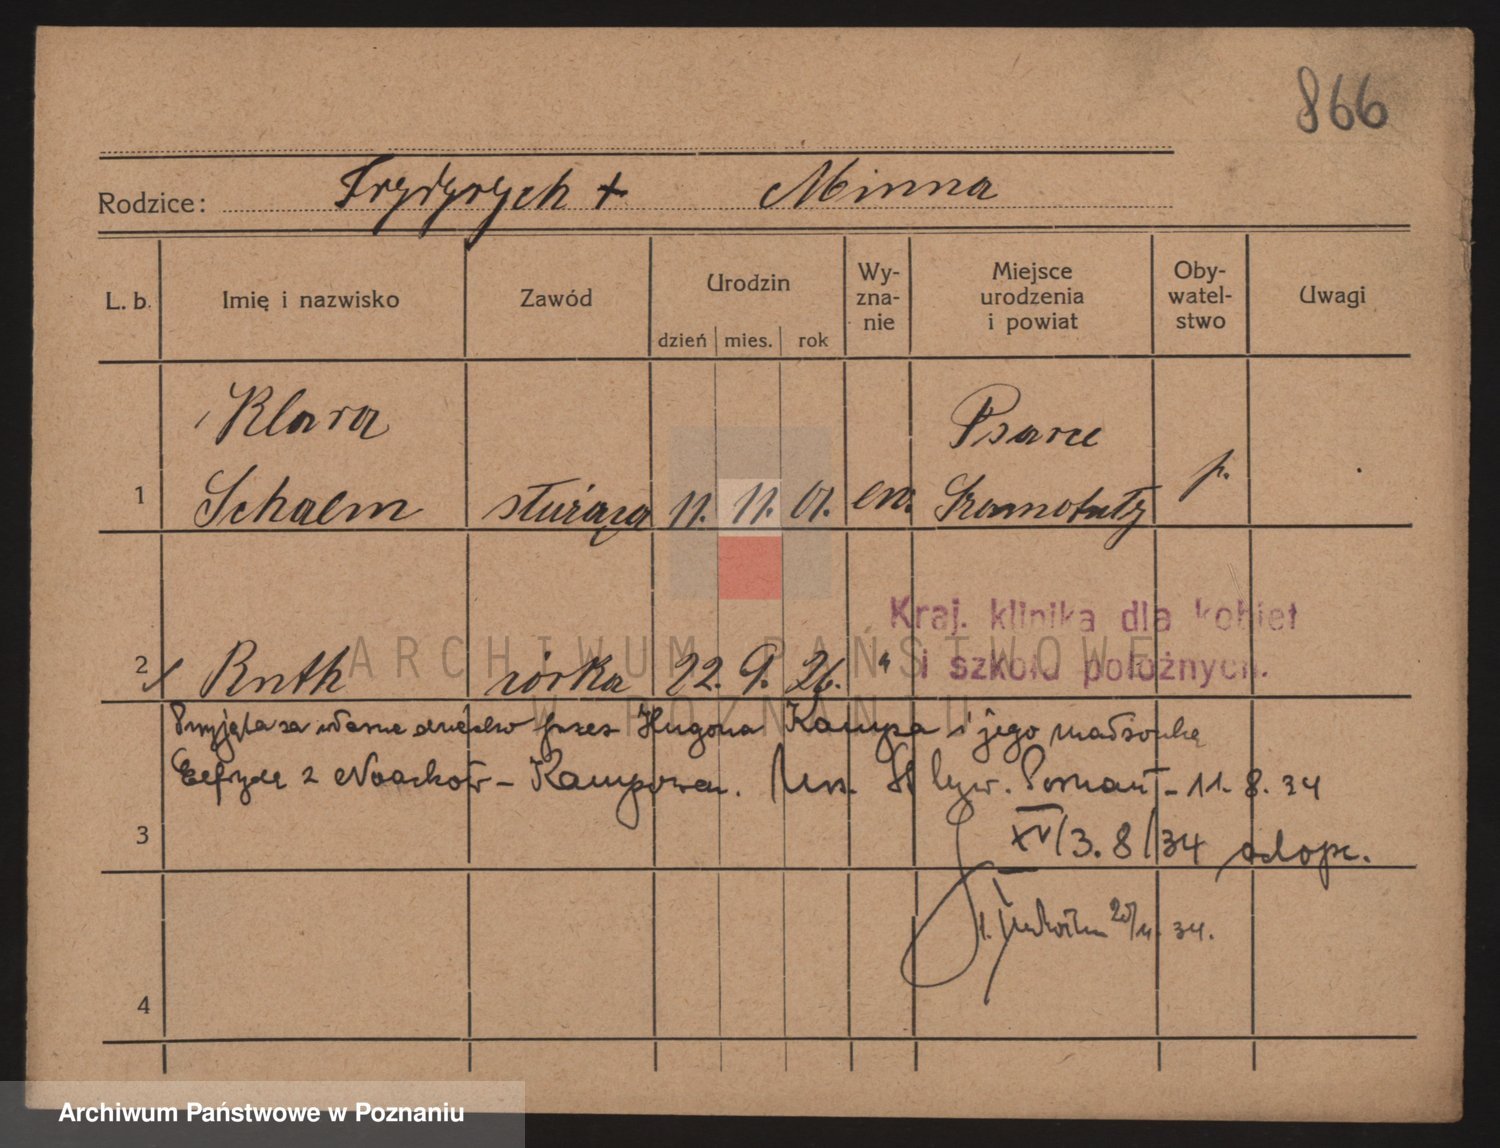 866
Rodzice: Frydrych + Minna
L. b. Imię i nazwisko Zawód Urodzin Wy-zna-nie Miejsce urodzenia i powiat Oby-watel-stwo Uwagi
dzień mies. rok
Klara Psarce
1 Schalm służąca 11. 11. 01. ew. Szamotuły p.
Kraj. klinika dla kobiet
i szkoła położnych.
2 Ruth córka 22. 9. 26. "
Przyjęta za własne dziecko przez Hugona Kampa i jego małżonkę
Elfrydę z Noacków - Kampową. Poznań - 11. 8. 34
3 XV/3. 8/34 adopc.
34.
4
ARCHIWUM PAŃSTWOWE
W POZNANIU
Archiwum Państwowe w Poznaniu